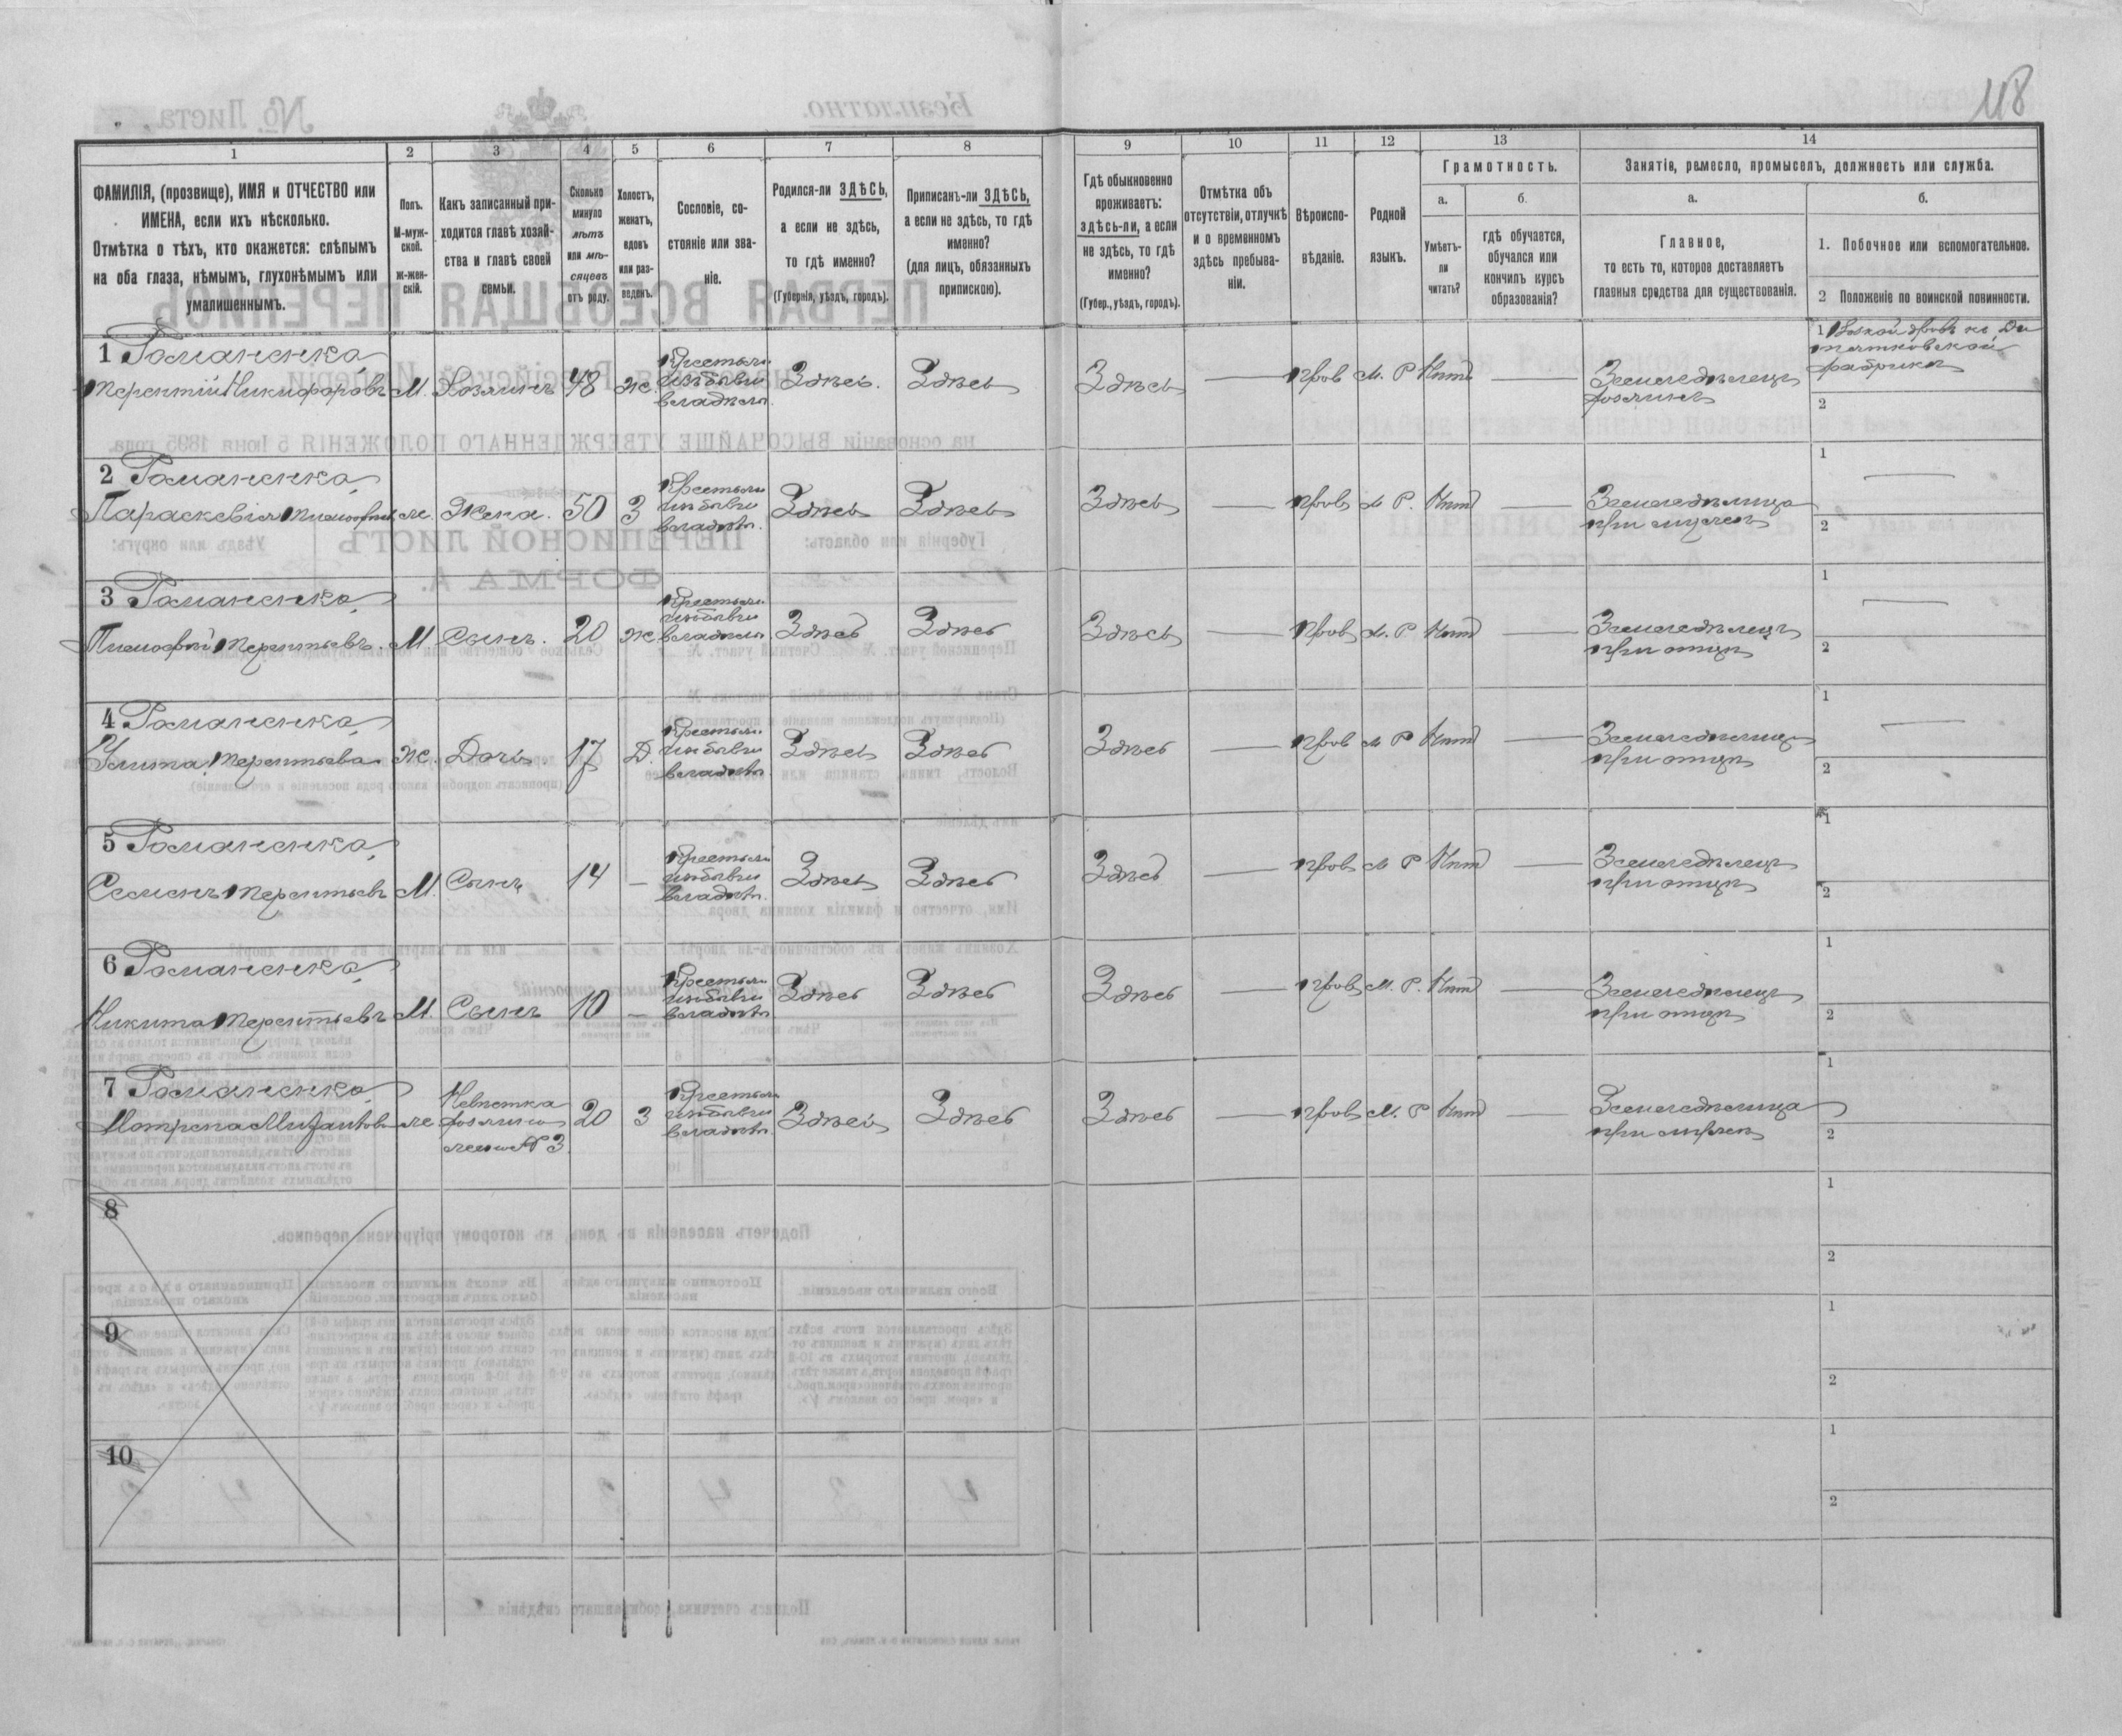 118
1 2 3 4 5 6 7 8 9 10 11 12 13 14
ФАМИЛІЯ, (прозвище), ИМЯ и ОТЧЕСТВО или
ИМЕНА, если ихъ нѣсколько.
Отмѣтка о тѣхъ, кто окажется: слѣпымъ
на оба глаза, нѣмымъ, глухонѣмымъ или
умалишеннымъ.
Полъ.
М-муж-
ской.
ж-жен-
скій.
Какъ записанный при-
ходится главѣ хозяй-
ства и главѣ своей
семьи.
Сколько
минуло
лѣтъ
или мѣ-
сяцевъ
отъ роду.
Холостъ,
женатъ,
вдовъ
или раз-
веденъ.
Сословіе, со-
стояніе или зва-
ніе.
Родился-ли ЗДѢСЬ,
а если не здѣсь,
то гдѣ именно?
(Губернія, уѣздъ, городъ).
Приписанъ-ли ЗДѢСЬ,
а если не здѣсь, то гдѣ
именно?
(для лицъ, обязанныхъ
припискою).
Гдѣ обыкновенно
проживаетъ:
здѣсь-ли, а если
не здѣсь, то гдѣ
именно?
(Губер., уѣздъ, городъ).
Отмѣтка объ
отсутствіи, отлучкѣ
и о временномъ
здѣсь пребыва-
ніи.
Вѣроиспо-
вѣданіе.
Родной
языкъ.
Грамотность.
а.
Умѣетъ-
ли
читать?
б.
гдѣ обучается,
обучался или
кончилъ курсъ
образованія?
Занятія, ремесло, промыселъ, должность или служба.
а.
Главное,
то есть то, которое доставляетъ
главныя средства для существованія.
б.
1. Побочное или вспомогательное.
2 Положеніе по воинской повинности.
1 Романенко
Терентій Никифоровъ М. Хозяинъ 48 ж. Крестьян. изъ бывш владѣл. Здѣсь. Здѣсь Здѣсь — прав М. Р Нѣтъ — Земледѣлецъ
хозяинъ
1
фабрики
2
2 Романенко
Параскевія же. Жена. 50 З Крестьян изъ бывш владѣл. Здѣсь Здѣсь Здѣсь — прав М Р. Нѣт — Земледѣлица
при мужѣ
1 —
2
3 Романенко
Тимофей Терентьевъ. М Сынъ. 20 ж. Крестьян. изъ бывш владѣл. Здѣсь Здѣсь Здѣсь — прав М. Р Нѣт — Земледѣлецъ
при отцѣ
1 —
2
4 Романенко
Улита Терентьева ж. Дочь. 17 Д. Крестьян. изъ бывш владѣл. Здѣсь Здѣсь Здѣсь — прав М Р Нѣт — Земледѣлица
при отцѣ
1 —
2
5 Романенко
Семенъ Терентьевъ М. Сынъ 14 — Крестьян изъ бывш владѣл. Здѣсь Здѣсь Здѣсь — прав М Р Нѣт — Земледѣлецъ
при отцѣ
1
2
6 Романенко
Никита Терентьевъ М. Сынъ 10 — Крестьян изъ бывш владѣл Здѣсь Здѣсь Здѣсь — прав М. Р. Нѣт — Земледѣлецъ
при отцѣ
1
2
7 Романенко
Мотрена же Невѣстка хозяина жена № 3. 20 З Крестьян изъ бывш владѣл. Здѣсь Здѣсь Здѣсь — прав М. Р Нѣт — Земледѣлица
при мужѣ
1
2
8
1
2
9
1
2
10
1
2